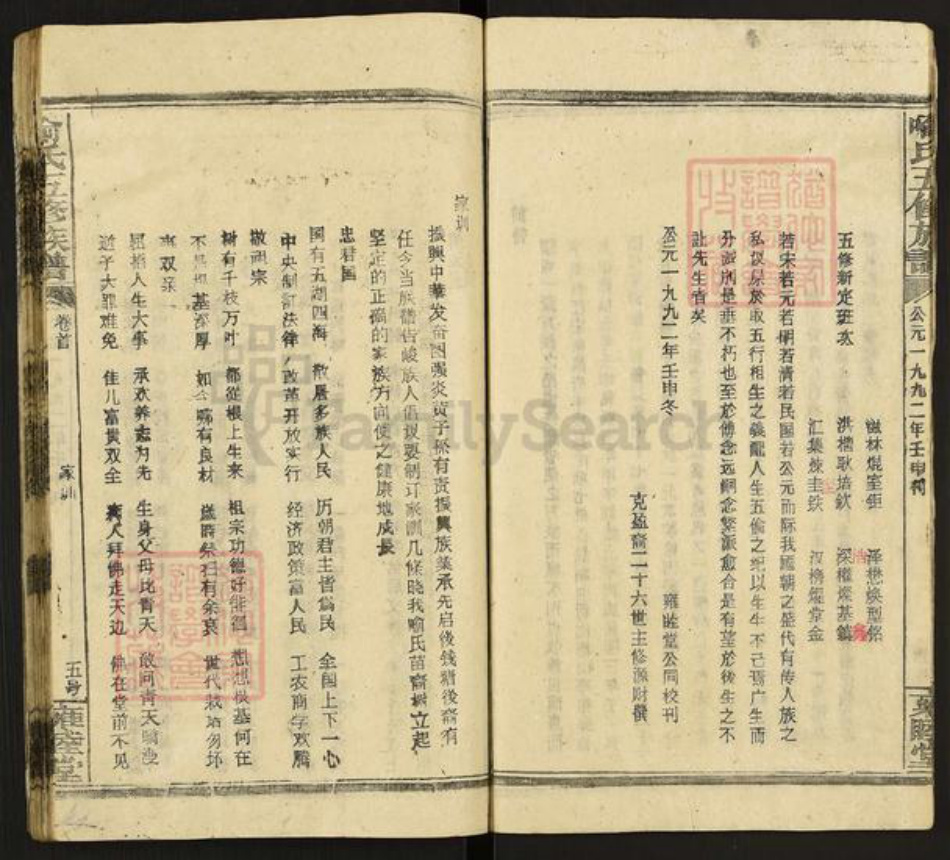 喻氏五修族譜
公元一九九二年壬申冬
五修新定班次
洪櫃耿培欽
汇集煉圭鉄
深權燦基鎮
汉榜燿堂金
若宋若元若明若清若民国若公元而际我國朝之盛代有传人族之
於取五行相生之義龍人生五倫之纪以生生不己焉广生而
則是垂不朽也至於傅念远嗣念繁派愈合是有望於後生之不
訨先生者矣
公元一九九二年壬申冬 雍睦堂公同校刊
克盈裔二十六世主修源財撰
家训
振興中華发奋图强炎黄子孫有责振興族業承先启後钱糟後裔有
任今当族譜告峻族人倡议要制订家訓几條晓我喻氏苗裔樹立起
坚定的正确的家族方向使之健康地成長
忠君国
国有五湖四海 散居多族人民 历朝君主皆為民 全国上下一心
中央制訂法律 改革开放实行 经济政策富人民 工农商学欢騰
敬祖宗
樹有千枝万叶 都從根上生来 祖宗功德好徘徊 想想根基何在
不是 基深厚 如今哪有良材 歲時祭祀有余哀 世代栽培勿坏
孝双亲
人生大事 承欢养志为先 生身父母比青天 敢问青天
道予大難难免 佳儿富贵双全 痴人拜佛走天边 佛在堂前不见
喻氏五修族譜
卷首
家训
五号
雍睦堂